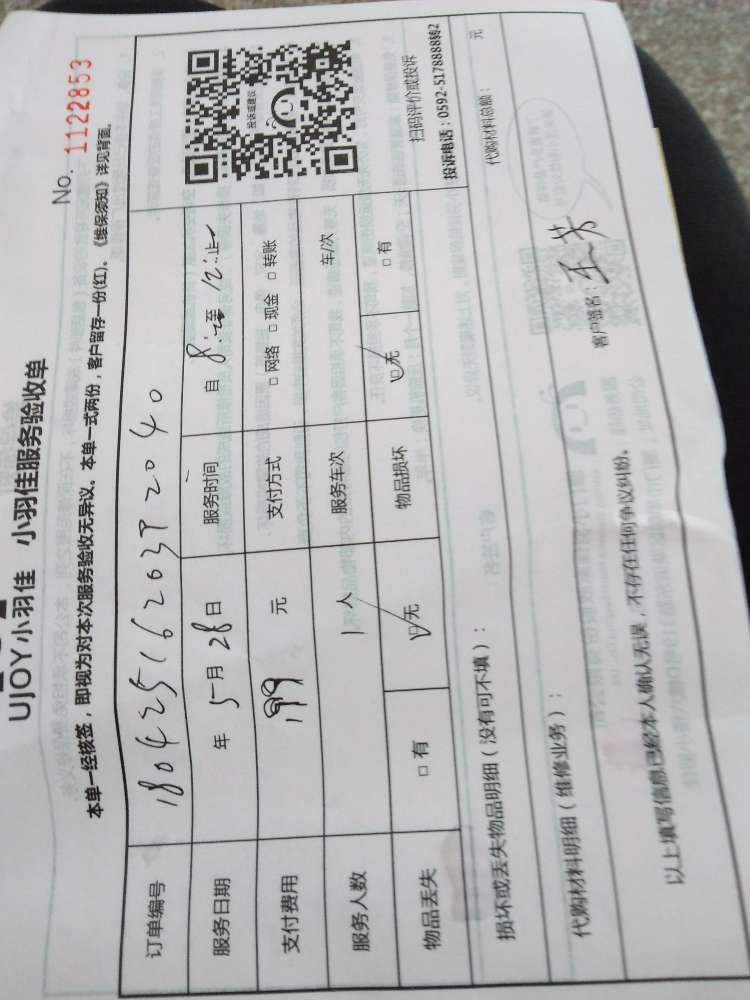 No. 1122853
UJOY小羽佳 小羽佳服务验收单
本单一经核签，即视为对本次服务验收无异议。本单一式两份，客户留存一份(红)。《维保须知》详见背面。
订单编号 180425162037 2040
服务日期 年 5月 28日 服务时间 自 8: 至 12:止
支付费用 199 元 支付方式 □ 网络 □ 现金 □ 转账
服务人数 1人 服务车次 车/次
物品丢失 □ 有 □无 物品损坏 □无 □ 有
投诉或建议
扫码评价或投诉
投诉电话：0592-5178888转2
损坏或丢失物品明细（没有可不填）：
代购材料明细（维修业务）： 代购材料总额： 元
以上填写信息已经本人确认无误，不存在任何争议纠纷。 客户签名：王芳